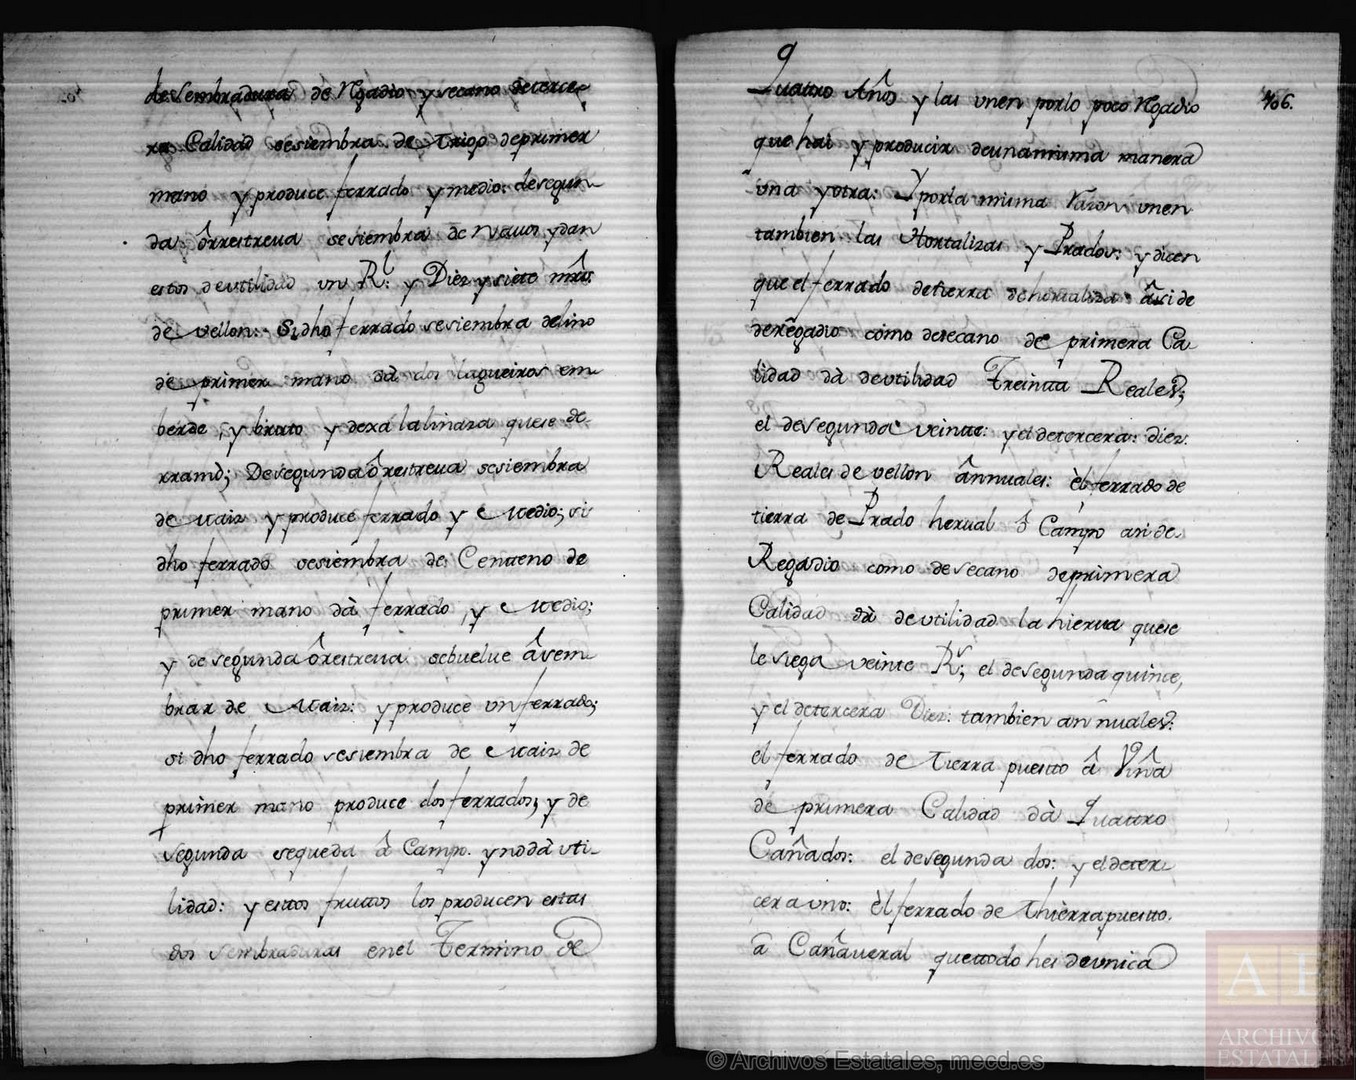 desembradura de Rgadio y secano de terce-
ra Calidad sesiembra de trigo deprimer
mano y produce ferrado y medio: desegun-
da ôrrestreua sesiembra de navos ydan
estos deutilidad un R.l y Diez y siete mrs.
de vellon: Sidho ferrado sesiembra delino
de primer mano dà dos
berde, y bruto y dexa lalinaza quese de-
rramó; Desegunda ôrestreua sesiembra
de Maiz y produce ferrado y Medio; si
dho ferrado sesiembra de Centeno de
primer mano dà ferrado, y Medio;
y de segunda ôrestreua sebuelue âsem-
brar de Maiz: y produce un ferrado;
si dho ferrado sesiembra de Maiz de
primer mano produce dos ferrados; y de
segunda sequeda â Campo. ynodà uti-
lidad: y estos frutos los producen estas
dos sembraduras enel Termino de
Quattro Años y las unen porlo poco Rgadio 406.
que hai y producir deunamisma manera
una yotra: Y porla misma Razon unen
tambien las Hortalizas y Prados: y dicen
que el ferrado detierra dehortaliza âsi de
deregadio cómo desecano de primera Ca-
lidad dà deutilidad Treinta Reales;
el desegunda veinte: y el detercera: diez
Reales de vellon ânnuales: èl ferrado de
tierra de Prado herual ô Campo asi de
Regadio como desecano deprimera
Calidad dà deutilidad la hierua quese
le siega veinte R.s; el desegunda quince,
y el detercera Diez: tambien annuales:
el ferrado de tierra puesto â Viña
de primera Calidad dà Quattro
Cañados: el desegunda dos: y eldeter-
cera uno: èl ferrado de thierra puesto
a Cañaueral quetodo hes deunica
© Archivos Estatales, mecd.es
AE
ARCHIVOS
ESTATALES